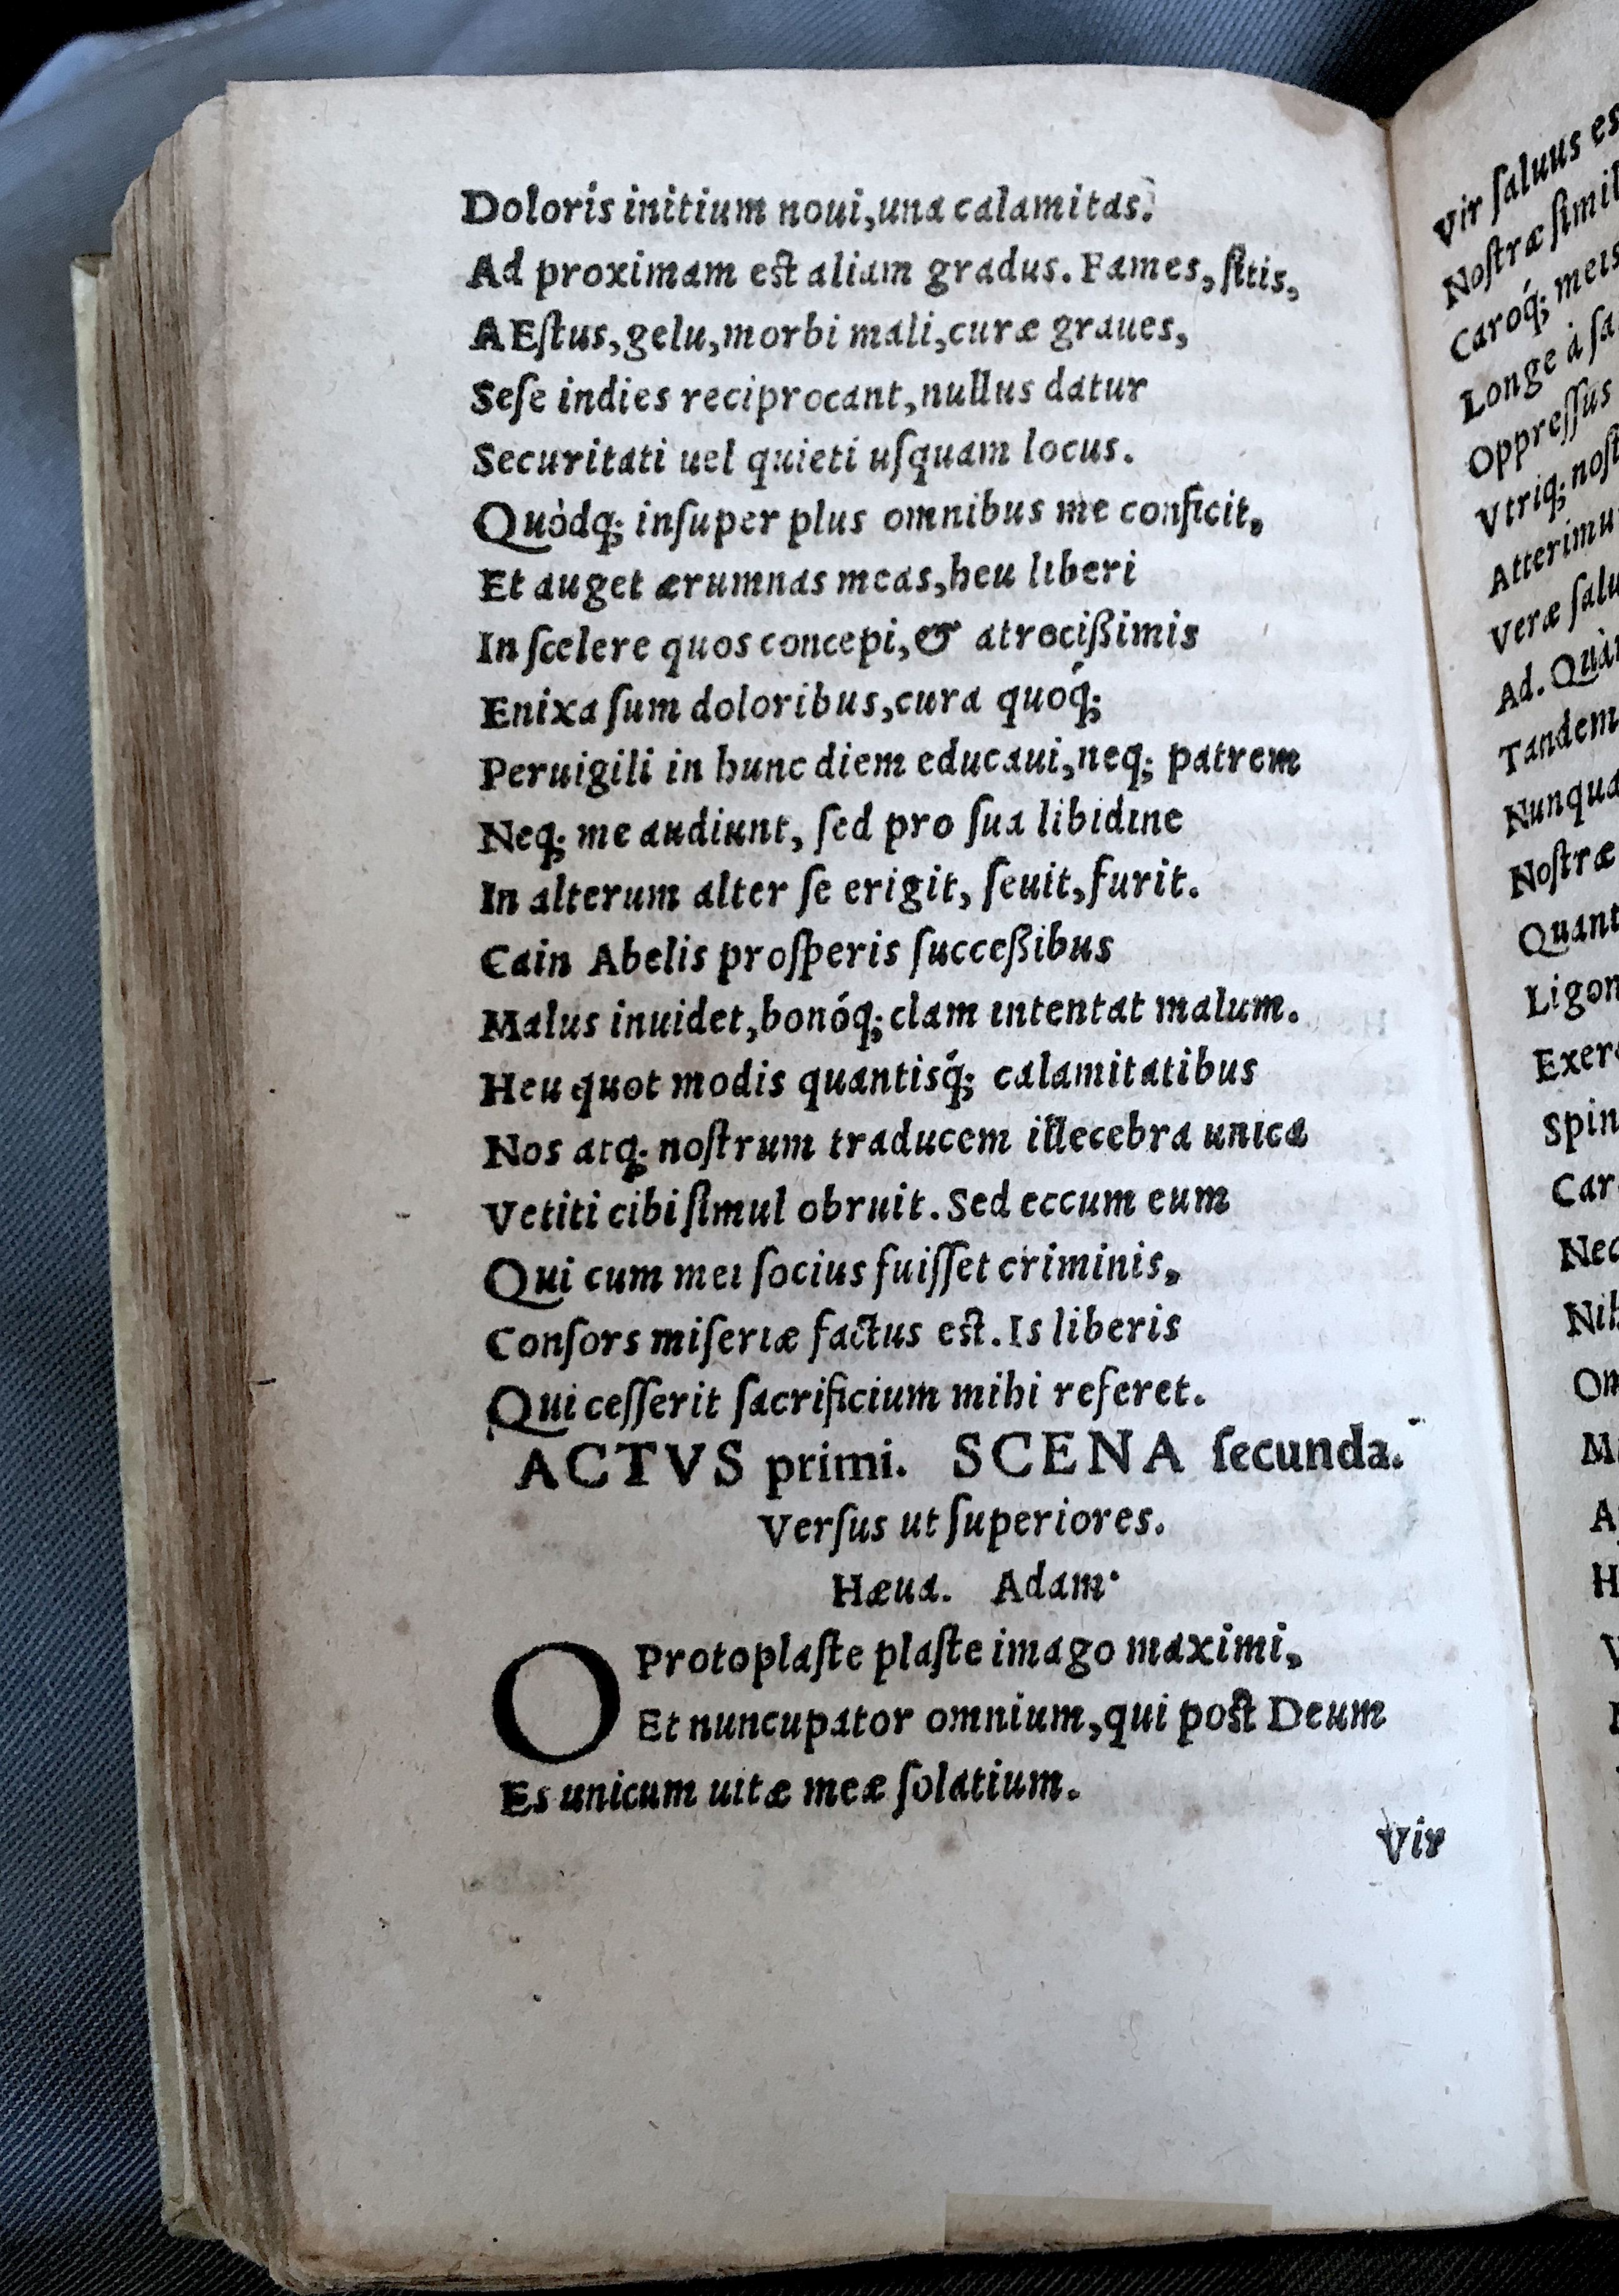 Doloris initium noui,una calamitas.
Ad proximam est aliam gradus. Fames, ſitis,
AEſtus,gelu,morbi mali,curæ graues,
Seſe indies reciprocant,nullus datur
Securitati uel quieti uſquam locus.
Quòdq; inſuper plus omnibus me conficit,
Et auget ærumnas meas,heu liberi
In ſcelere quos concepi,& atrocißimis
Enixa ſum doloribus,cura quoq́;
Peruigili in hunc diem educaui,neq; patrem
Neq; me audiunt, ſed pro ſua libidine
In alterum alter ſe erigit, ſeuit,furit.
Cain Abelis proſperis succeßibus
Malus inuidet,bonóq;clam intentat malum.
Heu quot modis quantisq́; calamitatibus
Nos atq; noſtrum traducem illecebra unica
Vetiti cibi ſimul obruit. Sed eccum eum
Qui cum mei ſocius fuiſſet criminis,
Conſors miſeriæ factus est. Is liberis
Qui ceſſerit ſacrificium mihi referet.
ACTVS primi. SCENA ſecunda.
Verſus ut ſuperiores.
Hæua. Adam·
O Protoplaſte plaſte imago maximi,
Et nuncupator omnium,qui post Deum
Es unicum uitæ meæ ſolatium.
Vir
Vir ſaluus es
Noſtræ ſimil
Caróq; meis
Longe à ſa
Oppreſſus
Vtriq; noſt
Atterimu
Veræ ſalu
Ad. Quàm
Tandem
Nunqua
Noſtræ
Quant
Ligon
Exer
Spin
Car
Nec
Nih
Om